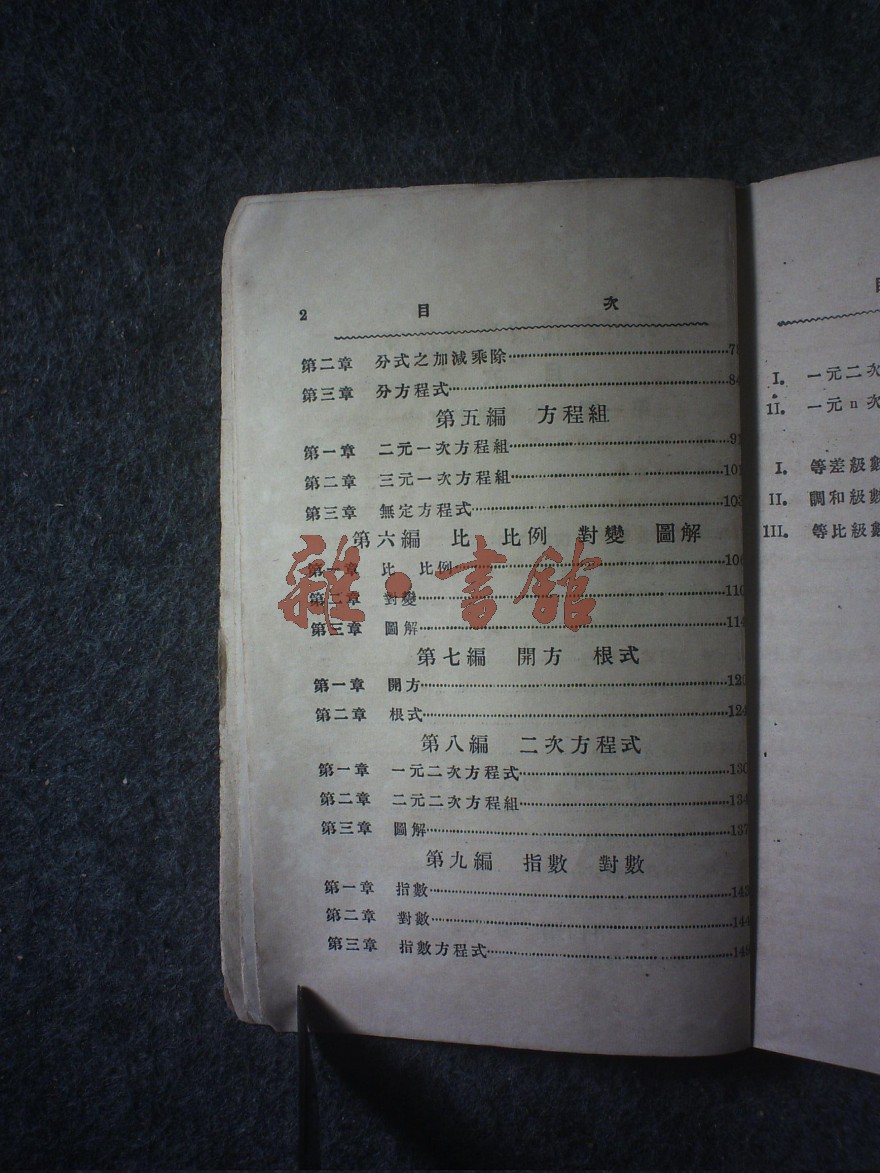 2 目 次
第二章 分式之加減乘除
第三章 分方程式
第五編 方程組
第一章 二元一次方程組
第二章 三元一次方程組
第三章 無定方程式
第六編 比 比例 對變 圖解
第一章 比 比例
第二章 對變
第三章 圖解
第七編 開方 根式
第一章 開方
第二章 根式
第八編 二次方程式
第一章 一元二次方程式 130
第二章 二元二次方程組 134
第三章 圖解 137
第九編 指數 對數
第一章 指數 143
第二章 對數 144
第三章 指數方程式
雜·書館
I. 一元二次
II. 一元n次
I. 等差級數
II. 調和級數
III. 等比級數